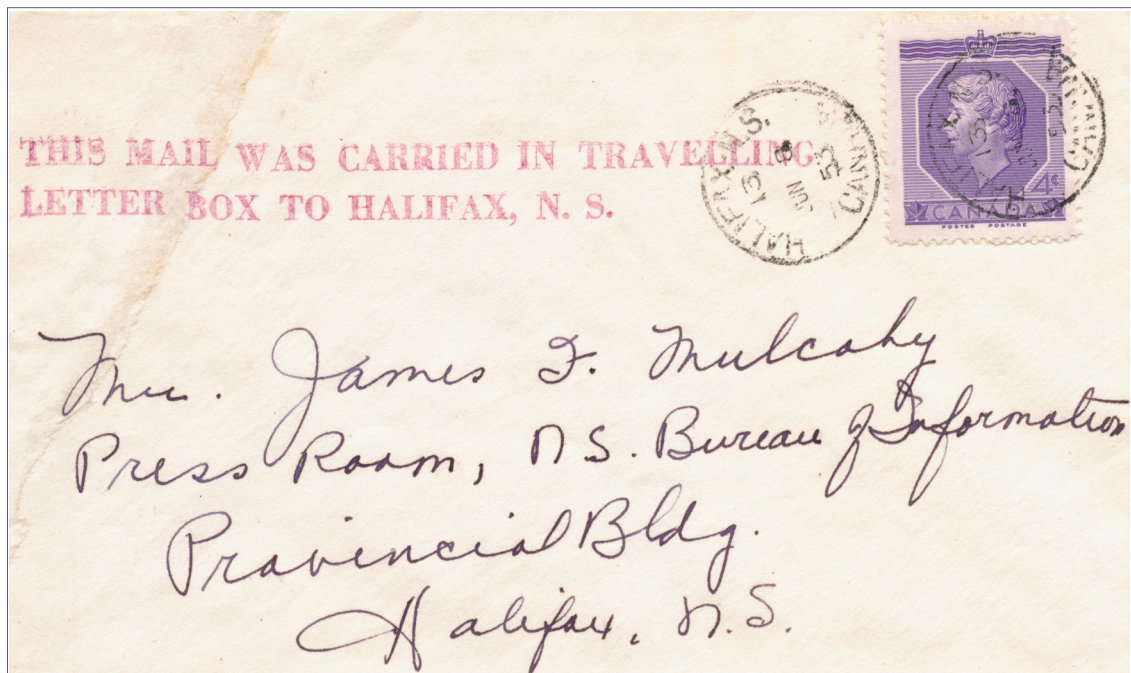 THIS MAIL WAS CARRIED IN TRAVELLING
LETTER BOX TO HALIFAX, N. S.
HALIFAX N.S.
CANADA
4¢
CANADA
POSTES POSTAGE
Mr. James F. Mulcahy
Press Room, N.S. Bureau of Information
Provincial Bldg.
Halifax, N.S.